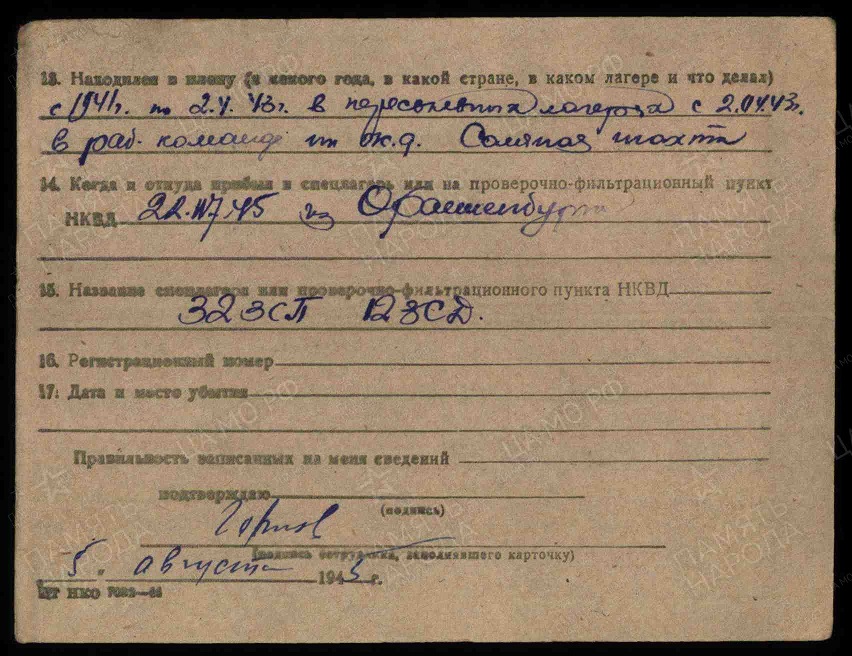 13. Находился в плену (с какого года, в какой стране, в каком лагере и что делал)
с 1941г. по 2.4.43г. в пересыльных лагерях с 2.04.43г.
в раб. команде ж.д. Соляная шахта
14. Когда и откуда прибыл в спецлагерь или на проверочно-фильтрационный пункт
НКВД 22.IV.45 из Ораниенбурга
15. Название спецлагеря или проверочно-фильтрационного пункта НКВД
32 зсп 12 зсд.
16. Регистрационный номер
17. Дата и место убытия
Правильность записанных на меня сведений
подтверждаю
(подпись)
(подпись сотрудника, заполнявшего карточку)
5. августа 1945 г.
НКО
ПАМЯТЬ НАРОДА
ЦАМО РФ